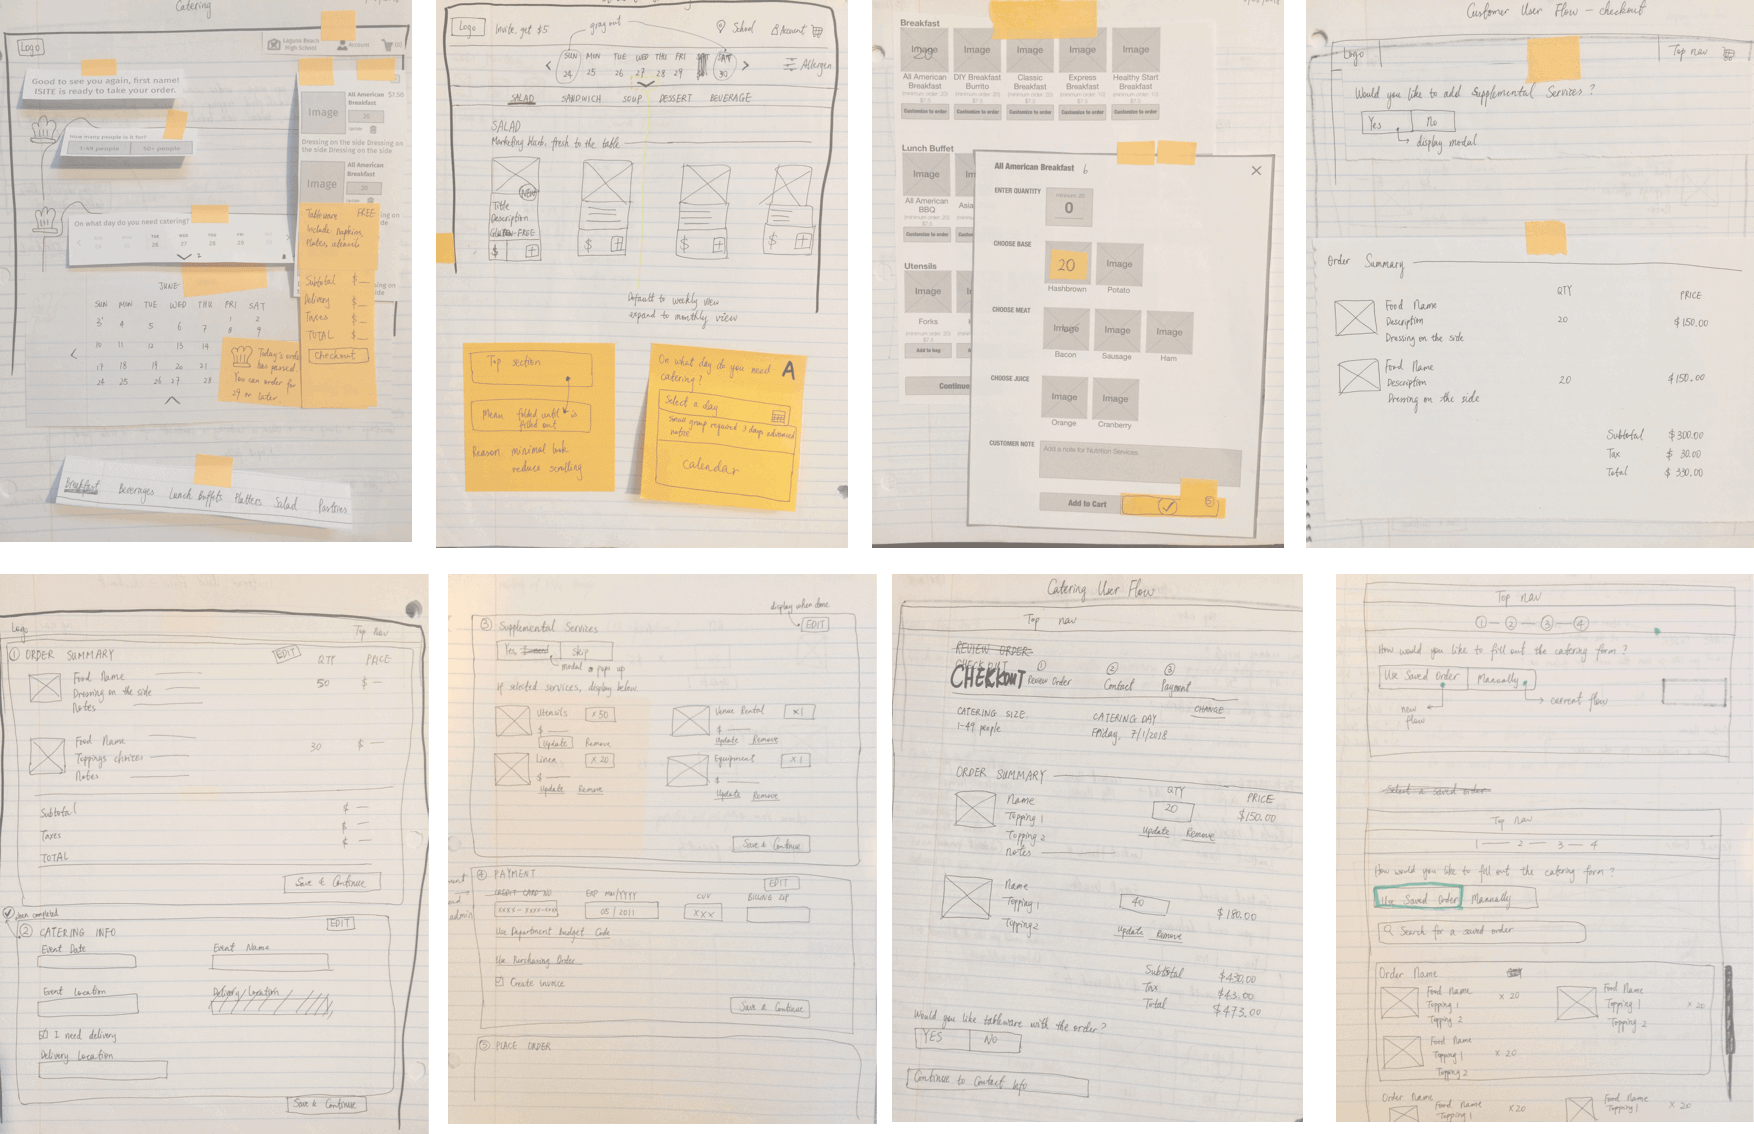 Catering
Logo
Laguna Beach
High School
Account
Good to see you again, first name!
ISITE is ready to take your order.
How many people is it for?
1-49 people
50+ people
On what day do you need catering?
JUNE
SUN MON TUE WED THU FRI SAT
1 2
3 4 5 6 7 8 9
10 11 12 13 14
17 18 19 20 21
24 25 26 27 28
Image
All American
Breakfast
$7.50
20
Update
Dressing on the side Dressing on
the side Dressing on the side
Image
All American
Breakfast
20
Tableware FREE
Include Napkins
Plates utensils
Subtotal $
Delivery $
Taxes $
TOTAL $
Checkout
Today's order
has passed.
You can order for
29 or later.
Breakfast Beverages Lunch Buffets Platters Salad Pastries
Logo
Invite, get $5
gray out
School
Account
SUN MON TUE WED THU FRI SAT SAT
24 25 26 27 28 29 30
Allergen
SALAD SANDWICH SOUP DESSERT BEVERAGE
SALAD
Marketing blurb, fresh to the table
NEW
Title
Description
GLUTEN-FREE
$ +
$ +
$ +
$ +
Default to weekly view
expand to monthly view
Top section
Menu folded until
filled out
Reason: minimal look
reduce scrolling
On what day do you need
catering?
A
Select a day
Small group required 3 days advanced
notice
calendar
Breakfast
Image Image Image Image Image
20
All American
Breakfast
DIY Breakfast
Burrito
Classic
Breakfast
Express
Breakfast
Healthy Start
Breakfast
(minimum order 20) (minimum order 20) (minimum order 10) (minimum order 10) (minimum order 10)
$7.5 $7.5 $7.5 $7.5 $7.5
Customize to order Customize to order Customize to order Customize to order Customize to order
Lunch Buffet
Image
All American
BBQ
(minimum order 20)
$7.5
Customize to order
Utensils
Image
Forks
(minimum order 20)
$7.5
Add to bag
Continue
All American Breakfast 6
ENTER QUANTITY
minimum 20
0
CHOOSE BASE
20
Image
Hashbrown Potato
CHOOSE MEAT
Image Image Image
Bacon Sausage Ham
CHOOSE JUICE
Image Image
Orange Cranberry
CUSTOMER NOTE
Add a note for Nutrition Services.
Add to Cart
5
Customer User Flow - checkout
Logo
Top nav
Would you like to add Supplemental Services?
Yes No
display modal
Order Summary
QTY PRICE
Food Name
Description
Dressing on the side
20 $150.00
Food Name
Description
Dressing on the side
20 $150.00
Subtotal $300.00
Tax $ 30.00
Total $ 330.00
Logo
Top Nav
1 ORDER SUMMARY
EDIT
QTY PRICE
Food Name
Dressing on the side
Notes
50 $ —
Food Name
Toppings choices
Notes
30 $ —
Subtotal $ —
Taxes $ —
TOTAL $ —
Save & Continue
been completed
2 CATERING INFO
EDIT
Event Date Event Name
Event Location Delivery Location
I need delivery
Delivery Location
Save & Continue
display when done
3 Supplemental Services
EDIT
Yes Skip
modal pops up
If selected services, display below
Utensils x50
$
Update Remove
Venue Rental x1
$
Update Remove
Linen x20
$
Update Remove
Equipment x1
$
Update Remove
Save & Continue
4 PAYMENT
EDIT
CREDIT CARD NO EXP MM/YYYY CVV BILLING ZIP
xxxx-xxxx-xxx 05/2011 XXX
Use Department Budget Code
Use Purchasing Order
Create invoice
Save & Continue
5 PLACE ORDER
Catering User Flow
Top nav
REVIEW ORDER
CHECKOUT
CHECKOUT
1 Review Order
2 Contact
3 Payment
CATERING SIZE
1-49 people
CATERING DAY
Friday, 7/1/2018
CHANGE
ORDER SUMMARY
QTY PRICE
Name
Topping 1
Topping 2
notes
20 $150.00
Update Remove
Name
Topping 1
Topping 2
40 $180.00
Update Remove
Subtotal $430.00
Tax $43.00
Total $473.00
Would you like tableware with the order?
YES NO
Continue to Contact Info
Top nav
1 — 2 — 3 — 4
How would you like to fill out the catering form?
Use Saved Order Manually
new
flow
current flow
Select a saved order
Top nav
1 — 2 — 3 — 4
How would you like to fill out the catering form?
Use Saved Order Manually
Search for a saved order
Order Name
Food Name
Topping 1
Topping 2
x 20
Food Name
Topping 1
Topping 2
x 20
Food Name
Topping 1
Topping 2
x 20
Order Name
Food Name
Topping 1
x20
Food Name
Topping 1
x 20